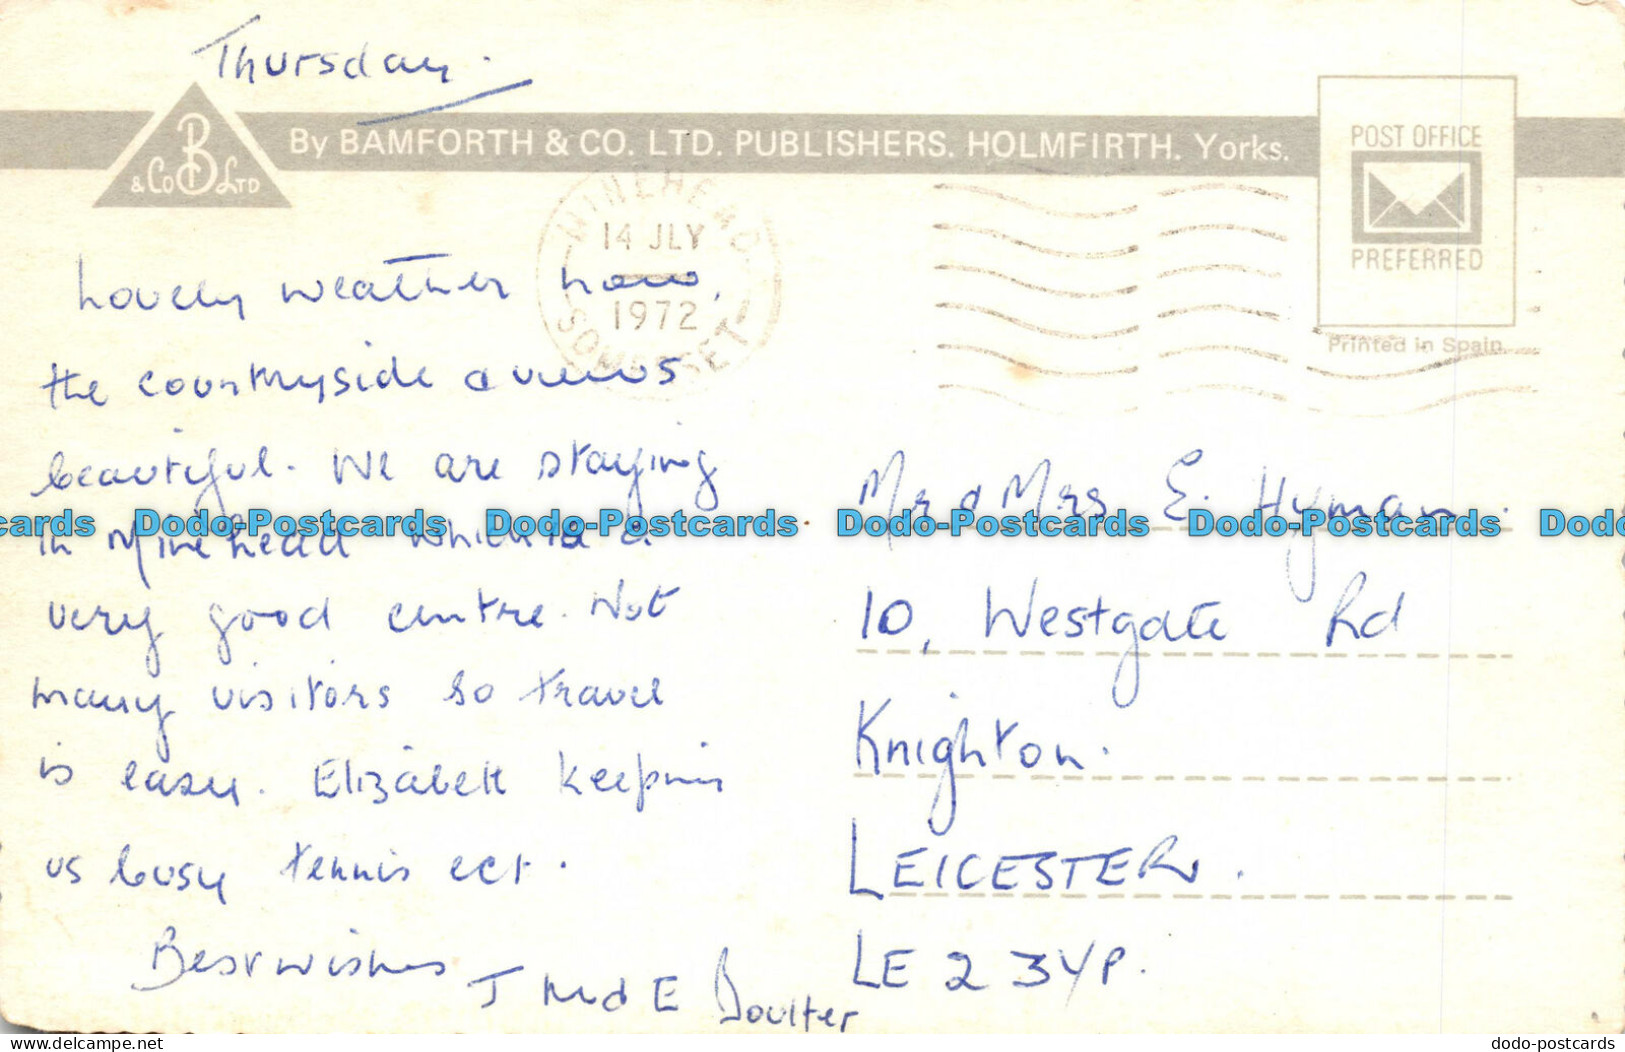 Thursday.
By BAMFORTH & CO. LTD. PUBLISHERS. HOLMFIRTH. Yorks.
B
& Co Ltd
POST OFFICE
PREFERRED
Printed in Spain
MINEHEAD
14 JLY
1972
SOMERSET
Lovely weather now,
the countryside & views
beautiful. We are staying
in Minehead which is a
very good centre. Not
many visitors so travel
is easy. Elizabeth keeping
us busy tennis ect.
Best wishes
J and E Boulter
Mr & Mrs E. Hyman.
10, Westgate Rd
Knighton.
LEICESTER.
LE 2 3YP.
cards Dodo-Postcards Dodo-Postcards Dodo-Postcards Dodo-Postcards Dodo
delcampe.net
dodo-postcards